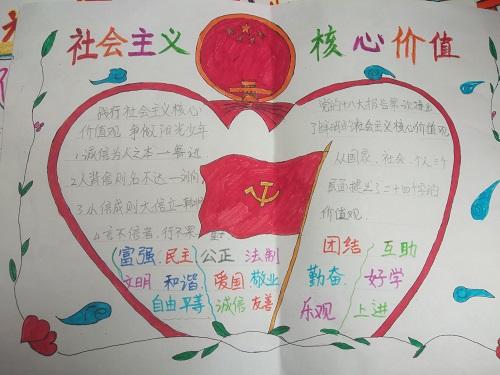 社会主义 核心价值
践行社会主义核心
价值观 争做阳光少年
1.诚信为人之本一鲁迅
2.人背信则名不达一刘向
3.小信成则大信立一韩
4.言不信者，行不果
党的十八大报告
了 社会主义核心价值观
从国家、社会、个人三个
层面提出了二十四个字的
价值观.
富强 民主 公正 法制
文明 和谐 爱国 敬业
自由平等 诚信 友善
团结 互助
勤奋 好学
乐观 上进